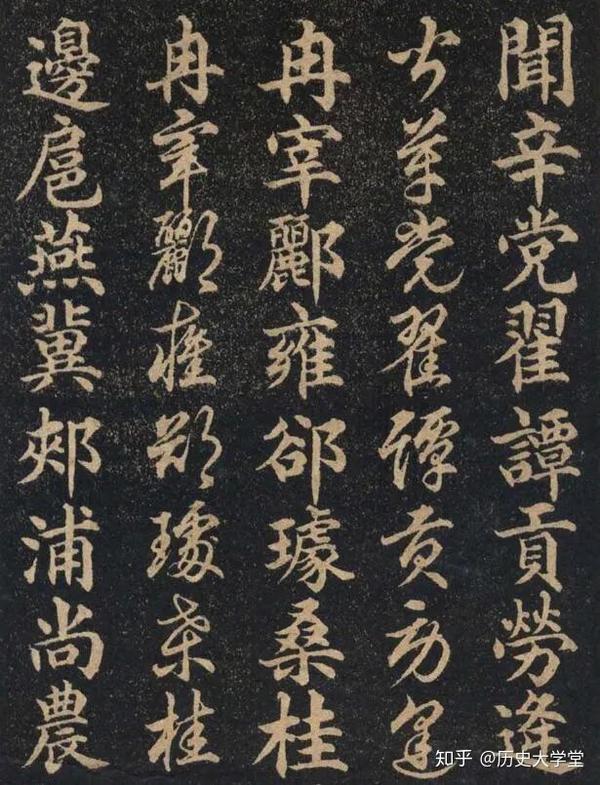 聞辛党翟譚貢勞逄
聞莘党翟譚貢勞逄
冉宰酈雍郤璩桑桂
冉宰酈雍郤璩桑桂
邊扈燕冀郟浦尚農
知乎 @历史大学堂